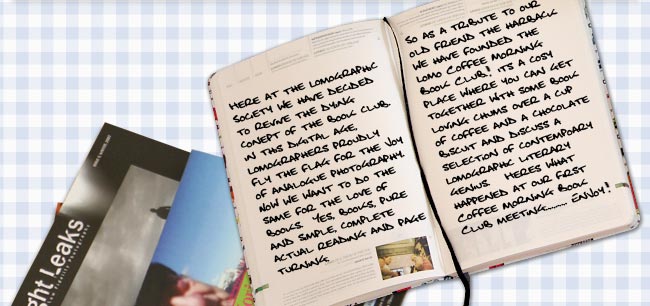 HERE AT THE LOMOGRAPHIC
SOCIETY WE HAVE DECIDED
TO REVIVE THE DYING
CONEPT OF THE BOOK CLUB.
IN THIS DIGITAL AGE,
LOMOGRAPHERS PROUDLY
FLY THE FLAG FOR THE JOY
OF ANALOGUE PHOTOGRAPHY.
NOW WE WANT TO DO THE
SAME FOR THE LOVE OF
BOOKS. YES, BOOKS, PURE
AND SIMPLE, COMPLETE
ACTUAL READING AND PAGE
TURNING.
SO AS A TRIBUTE TO OUR
OLD FRIEND THE HARBACK
WE HAVE FOUNDED THE
LOMO COFFEE MORNING
BOOK CLUB! ITS A COSY
PLACE WHERE YOU CAN GET
TOGETHER WITH SOME BOOK
LOVING CHUMS OVER A CUP
OF COFFEE AND A CHOCOLATE
BISCUIT AND DISCUSS A
SELECTION OF CONTEMPOARY
LOMOGRAPHIC LITERARY
GENIUS. HERES WHAT
HAPPENED AT OUR FIRST
COFFEE MORNING BOOK
CLUB MEETING........ ENJOY!
ght Leaks